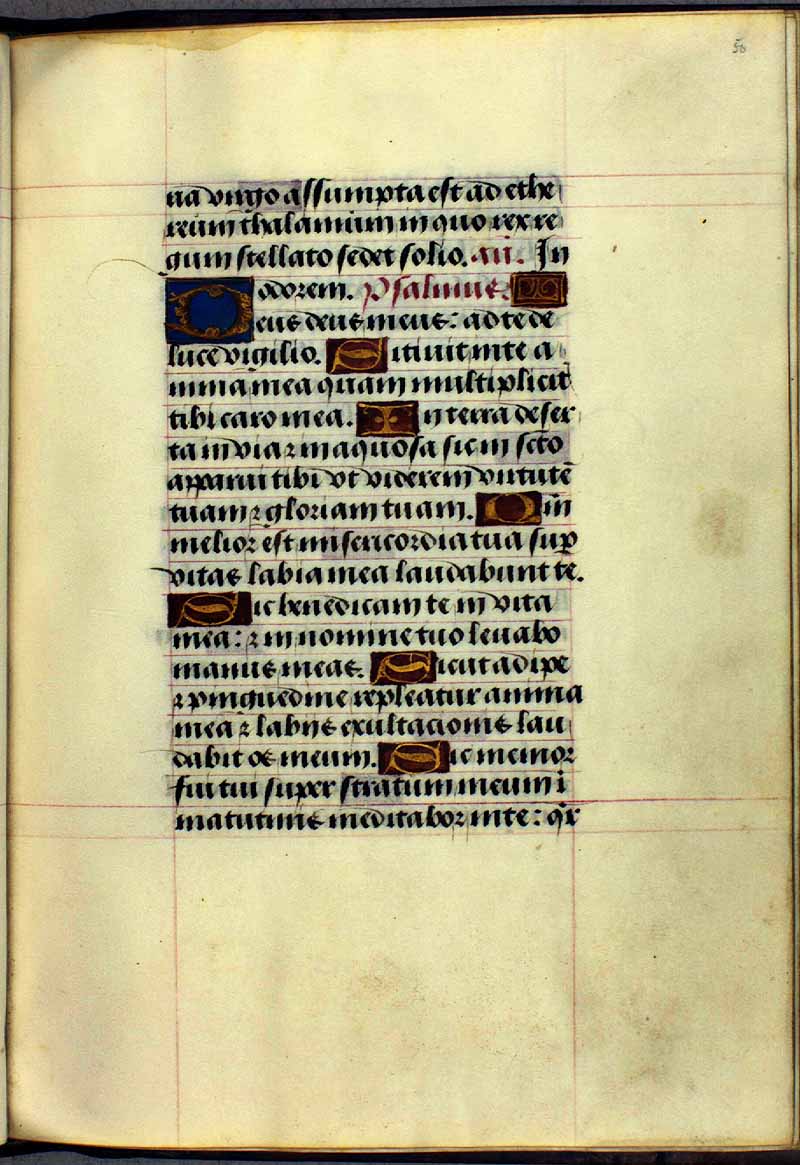 58
na virgo assumpta est ad ethe
reum thalamum in quo rex re
gum stellato sedet solio. añ. In
odorem. Psalmus.
Deus deus meus: ad te de
luce vigilio. Sitiuit in te a
nima mea quam multiplicit̄
tibi caro mea. In terra deser
ta in via ⁊ in aquosa sic in sc̄to
apparui tibi vt viderem virtutē
tuam ⁊ gloriam tuam. Qm̄
melior est misericordia tua sup̄
vitas labia mea laudabunt te.
Sic benedicam te in vita
mea: ⁊ in nomine tuo leuabo
manus meas. Sicut adipe
⁊ pinguedine repleatur anima
mea ⁊ labijs exultacionis lau
dabit os meum. Sic memor
fui tui super stratum meum ī
matutinis meditabor in te: qr̄